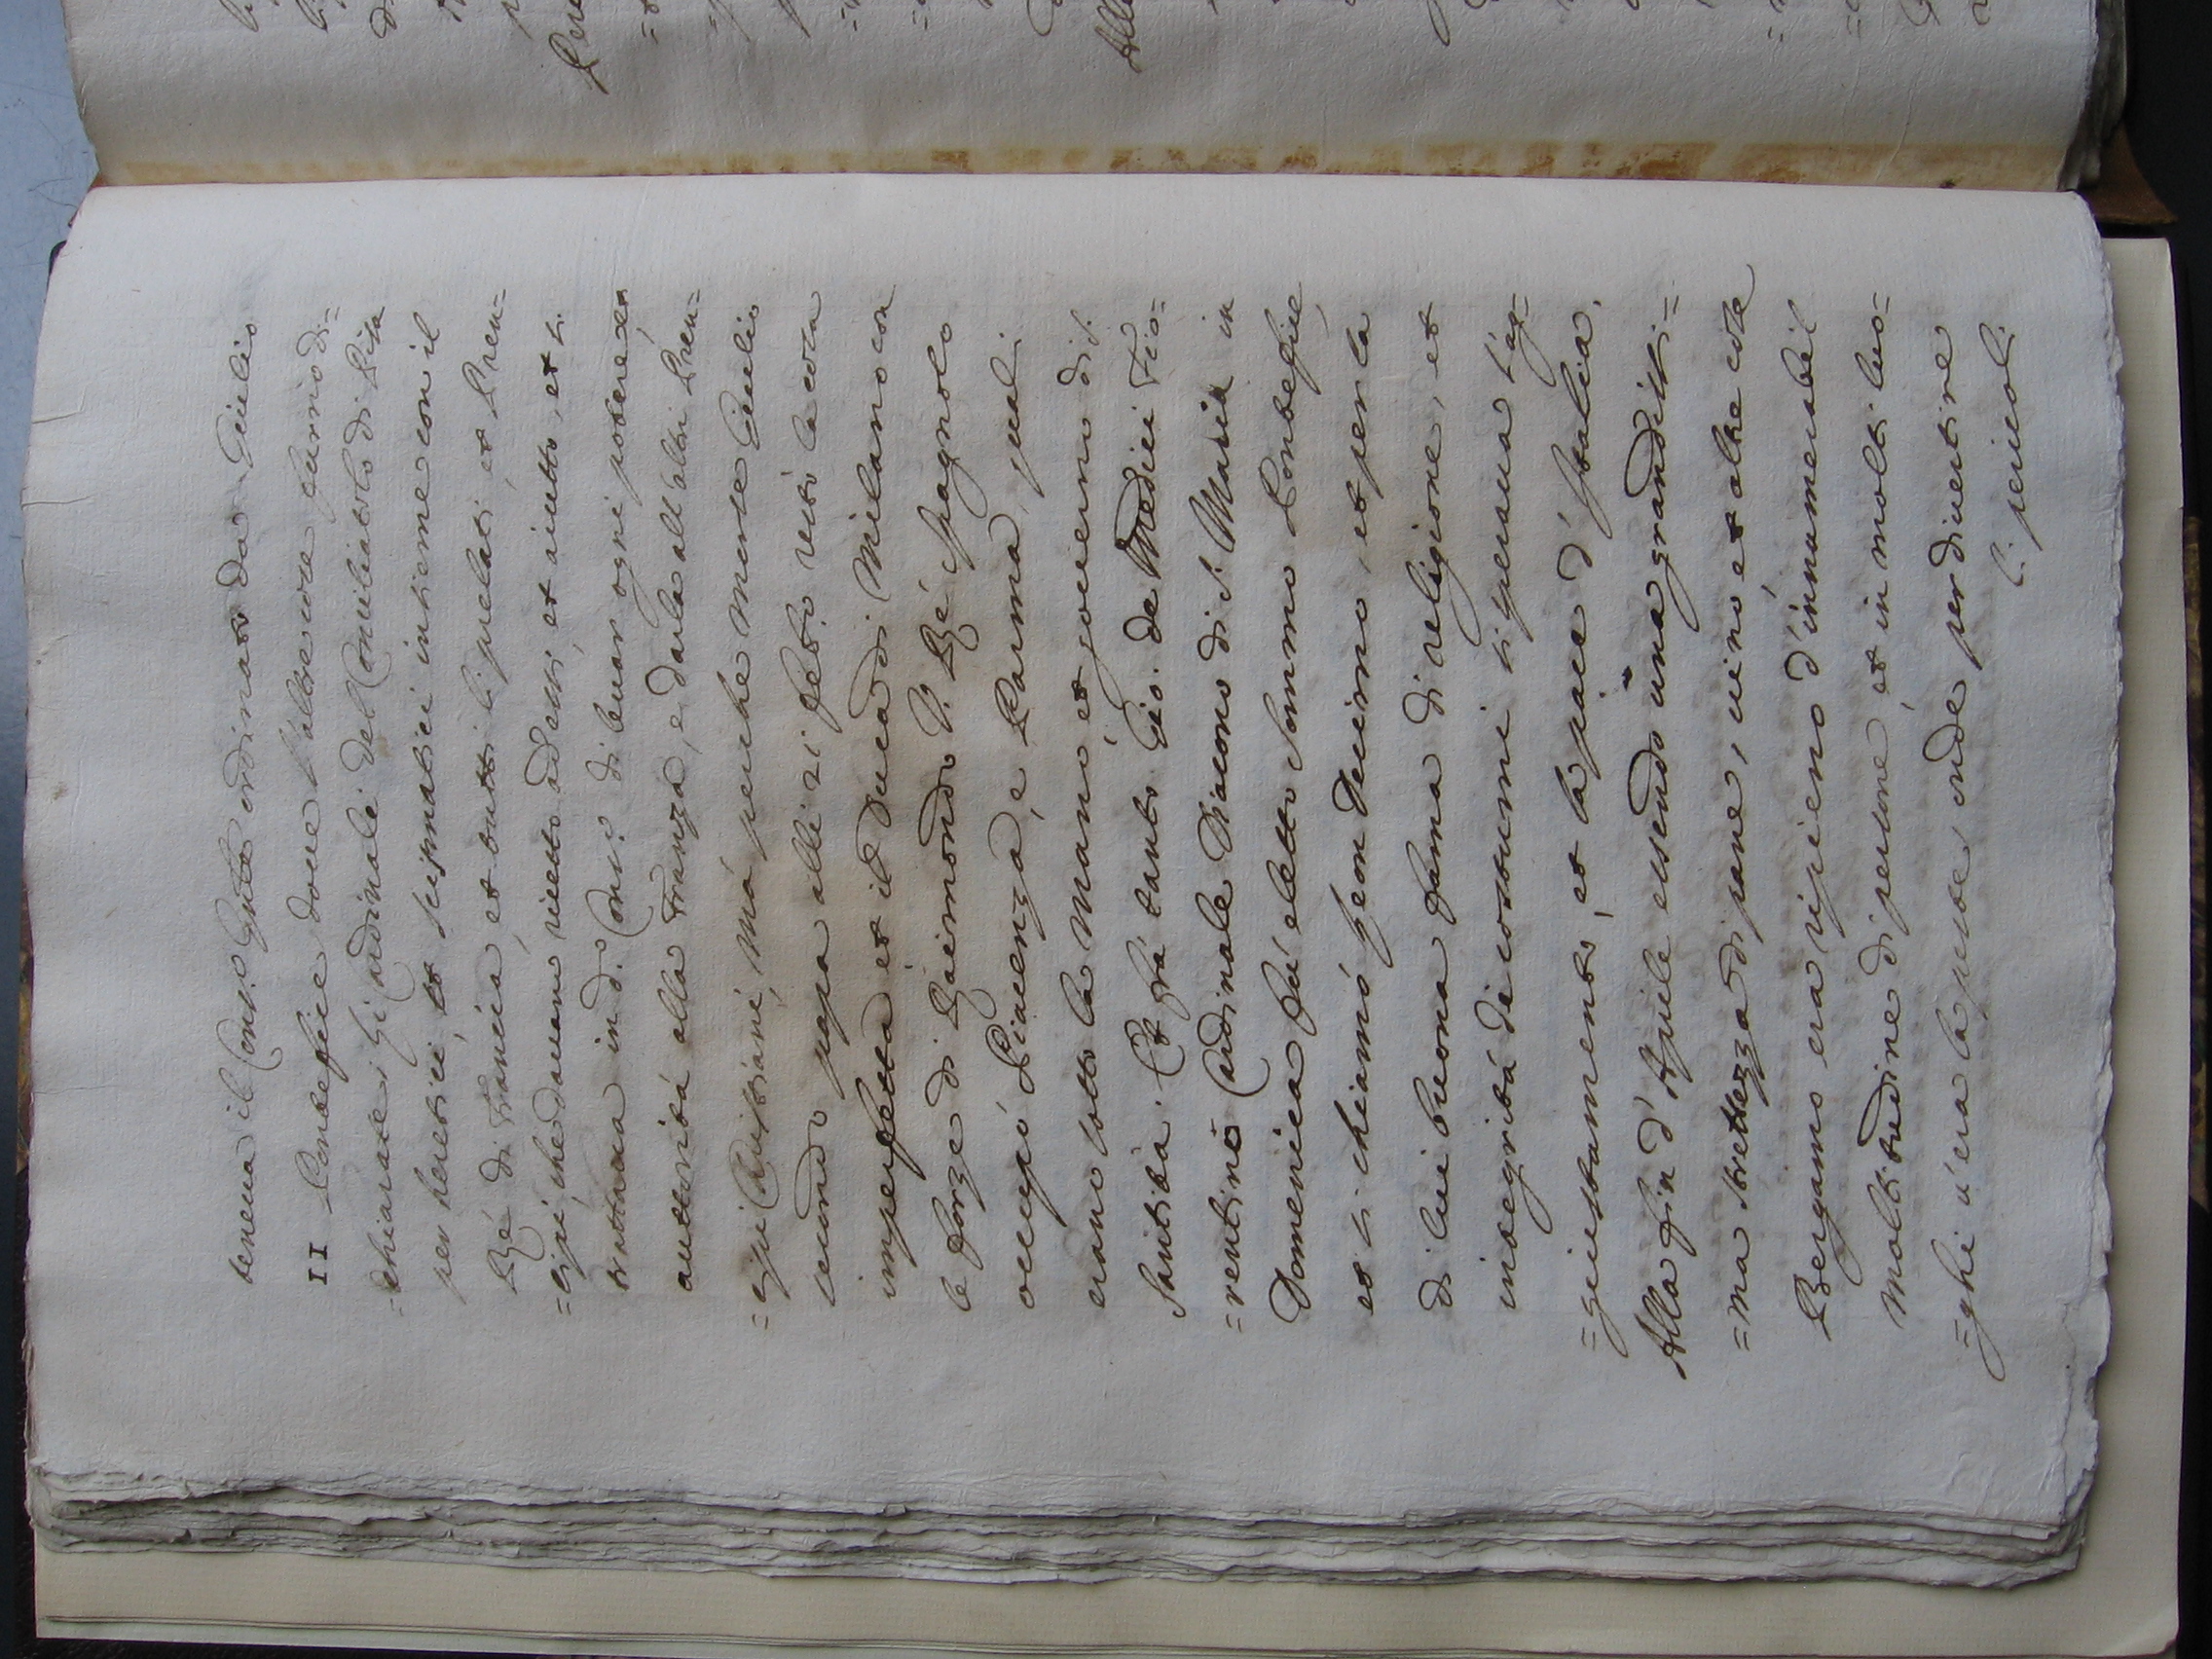 teneva il Conc.o Gnäle ordinato da Giulio
II Pontefice dove l'altre cose furno di=
=chiarati i Cardinali del Conciliabolo di Pisa
per heretici, et scismatici insieme con il
Rè di Francia, et tutti li prelati, et Pren=
=cipi che davano ricetto ad essi, et aiutto, et si
trattava in d.o Conc.o di levar ogni potere, ex
auttorità alla Franza, e darla all'altri Pren=
=cipi Christiani, Mà perche Morse Giulio
secondo papa alli 21 feb.o restò la cosa
imperfetta et il Duca di Milano con
le forze di Raimondo V. Rè spagnolo
occupò Piacenza, e Parma, quali
erano sotto la Mano et governo di S.
Santità. Et frà tanto Gio. de Medici Fio=
=rentino Cardinale Diacono di S. Maria in
Domenica fù eletto sommo Pontefice,
et si chiamò Leon Decimo, et per la
di lui buona fama di religione, et
integrità di costumi si sperava l'ag=
=giustamento, et la pace d'Italia.
Alla fin d'Aprile essendo una grandissi=
=ma strettezza di pane, vino et altre cose
Bergamo era ripieno d'innumerabil
Moltitudine di persone, et in molti luo=
=ghi v'era la peste, onde per divertire
li pericoli